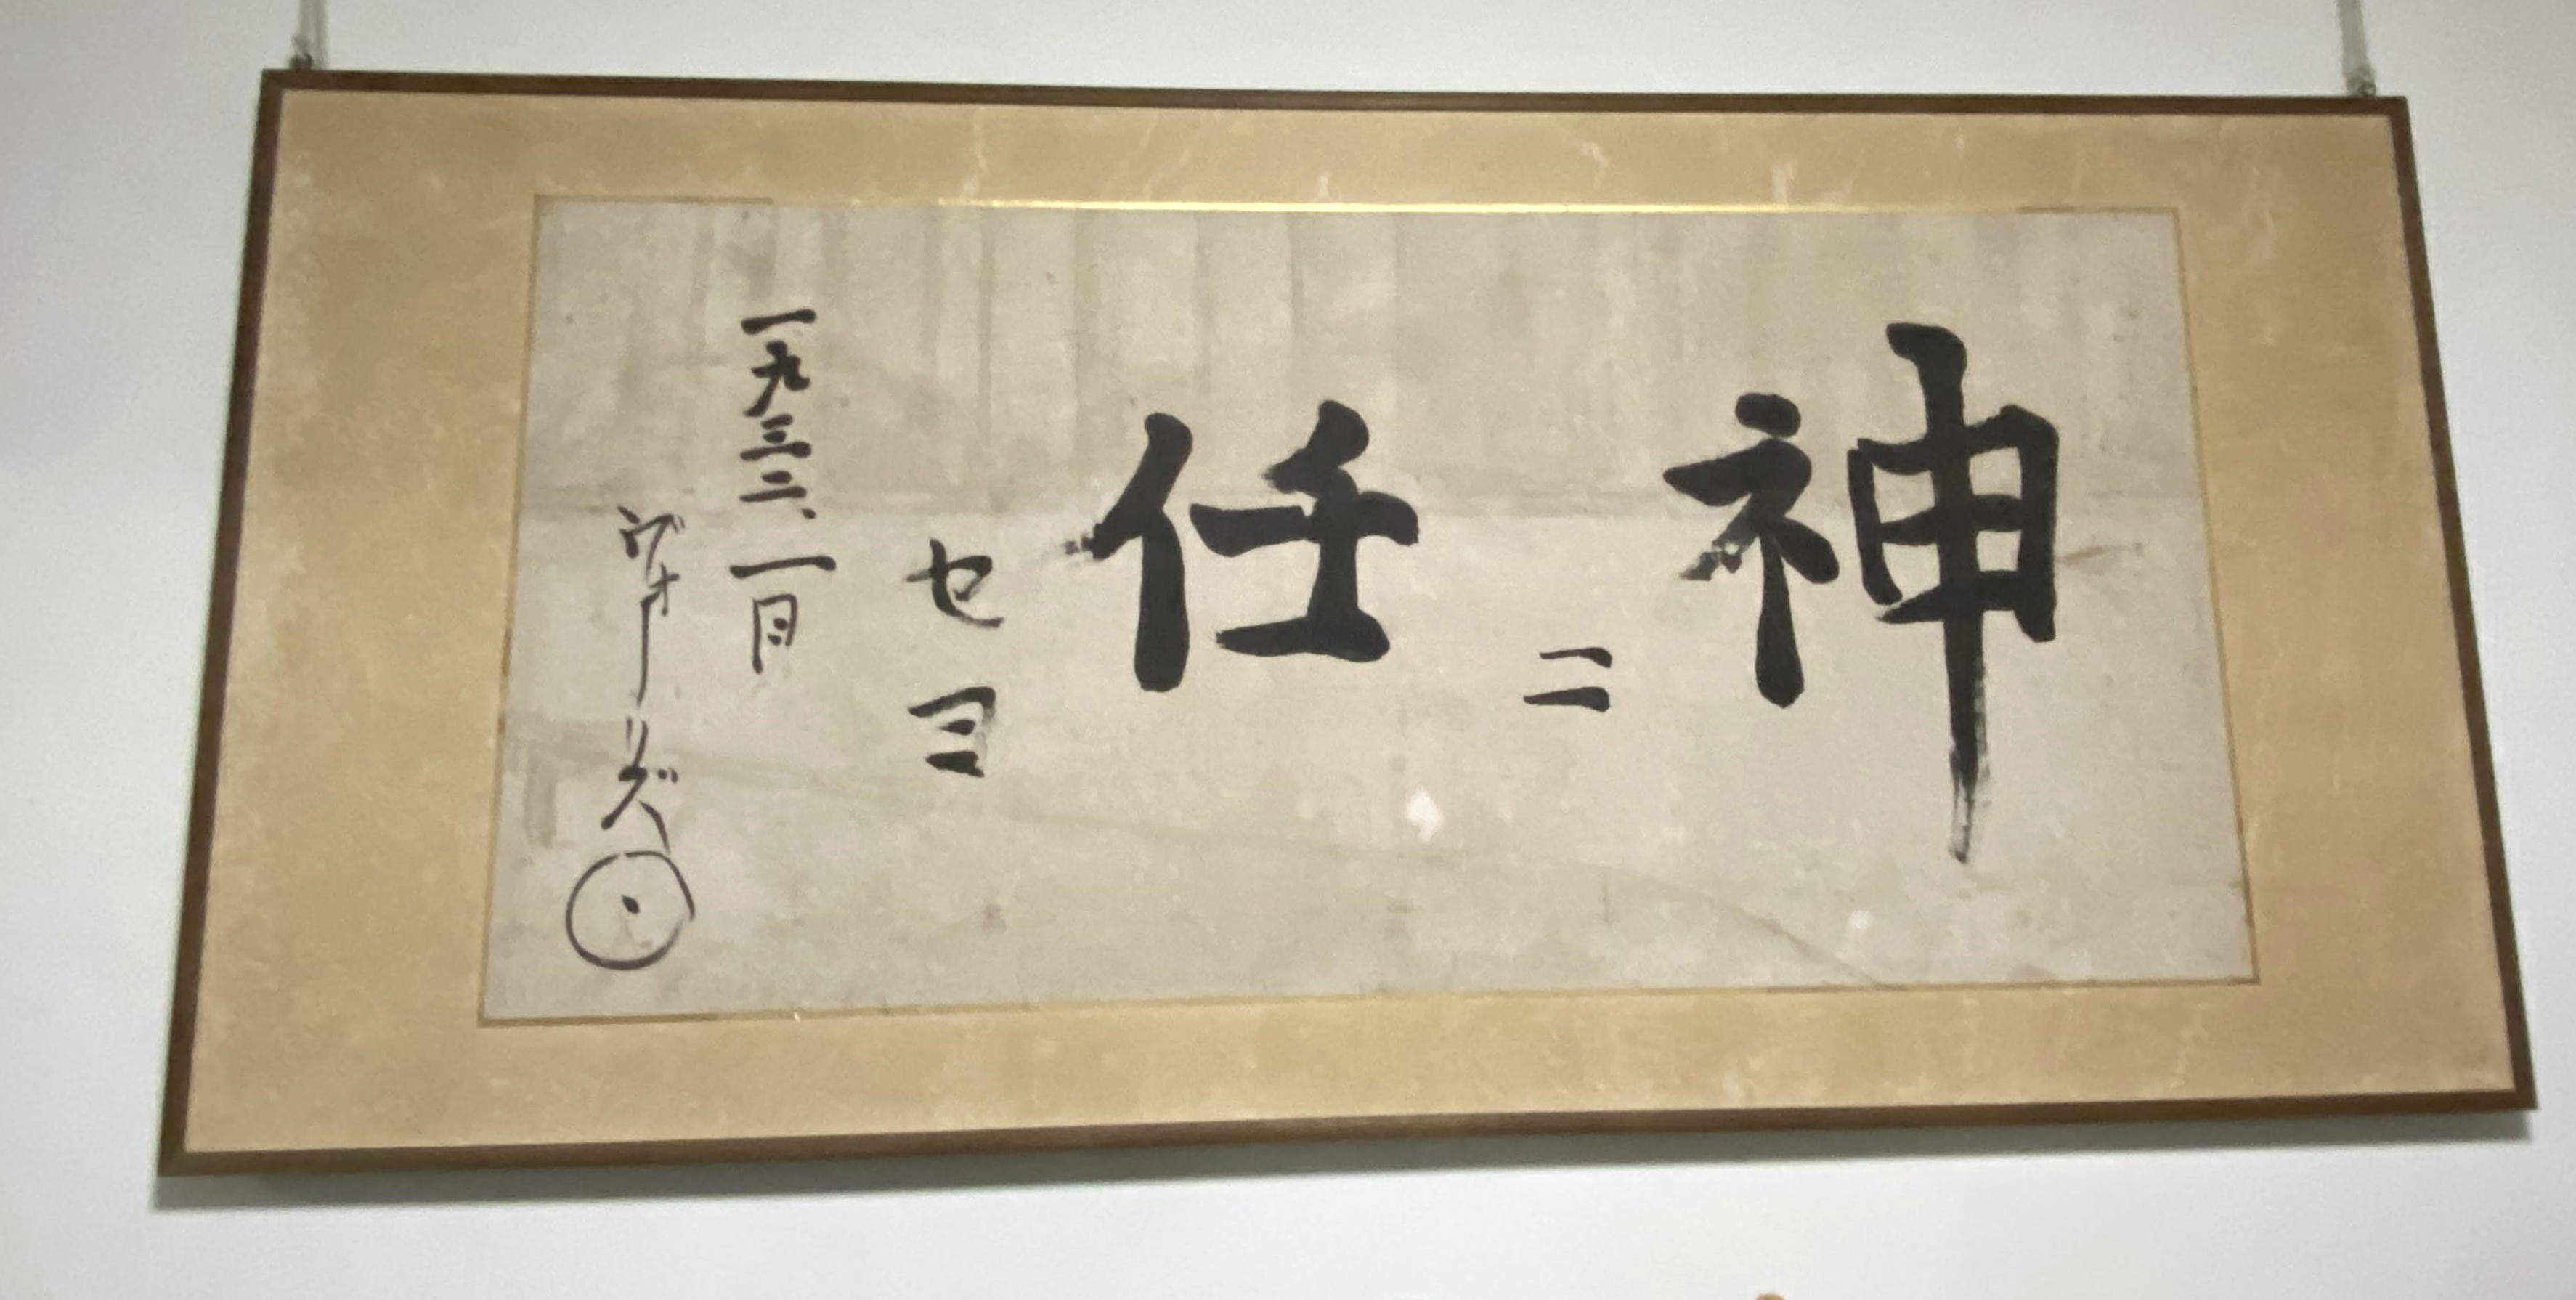 神ニ任セヨ
一九三二、一月
ヴォーリズ